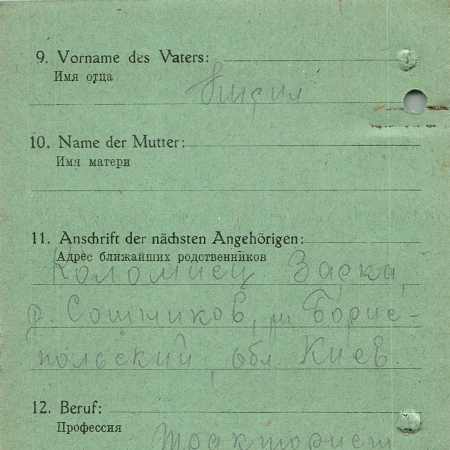 9. Vorname des Vaters:
Имя отца
10. Name der Mutter:
Имя матери
11. Anschrift der nächsten Angehörigen:
Адрес ближайших родственников
Коломиец Зарка
д. Сошников, рн Борис-
польский, обл. Киев.
12. Beruf:
Профессия
Тракторист